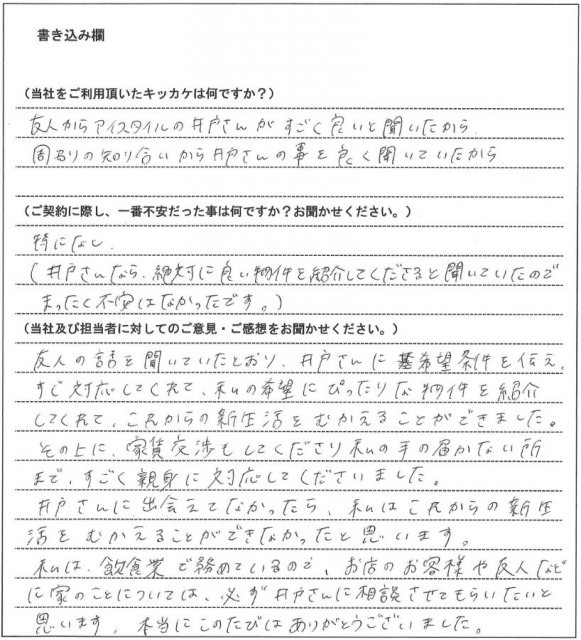 書き込み欄
（当社をご利用頂いたキッカケは何ですか？）
友人からアイスタイルの井戸さんがすごく良いと聞いたから.
周るりの知り合いから井戸さんの事を良く聞いていたから
（ご契約に際し、一番不安だった事は何ですか？お聞かせください。）
特になし.
(井戸さんなら、絶対に良い物件を紹介してくださると聞いていたので
まったく不安はなかったです。)
（当社及び担当者に対してのご意見・ご感想をお聞かせください。）
友人の話を聞いていたとおり、井戸さんに希望条件を伝え、
すぐ対応してくれて、私の希望にぴったりな物件を紹介
してくれて、これからの新生活をむかえることができました。
その上に、家賃交渉もしてくださり私の手の届かない所
まで、すごく親身に対応してくださいました。
井戸さんに出会えてなかったら、私はこれからの新生
活をむかえることができなかったと思います。
私は、飲食業で務めているので、お店のお客様や友人など
に家のことについては、必ず井戸さんに相談させてもらいたいと
思います。本当にこのたびはありがとうございました。